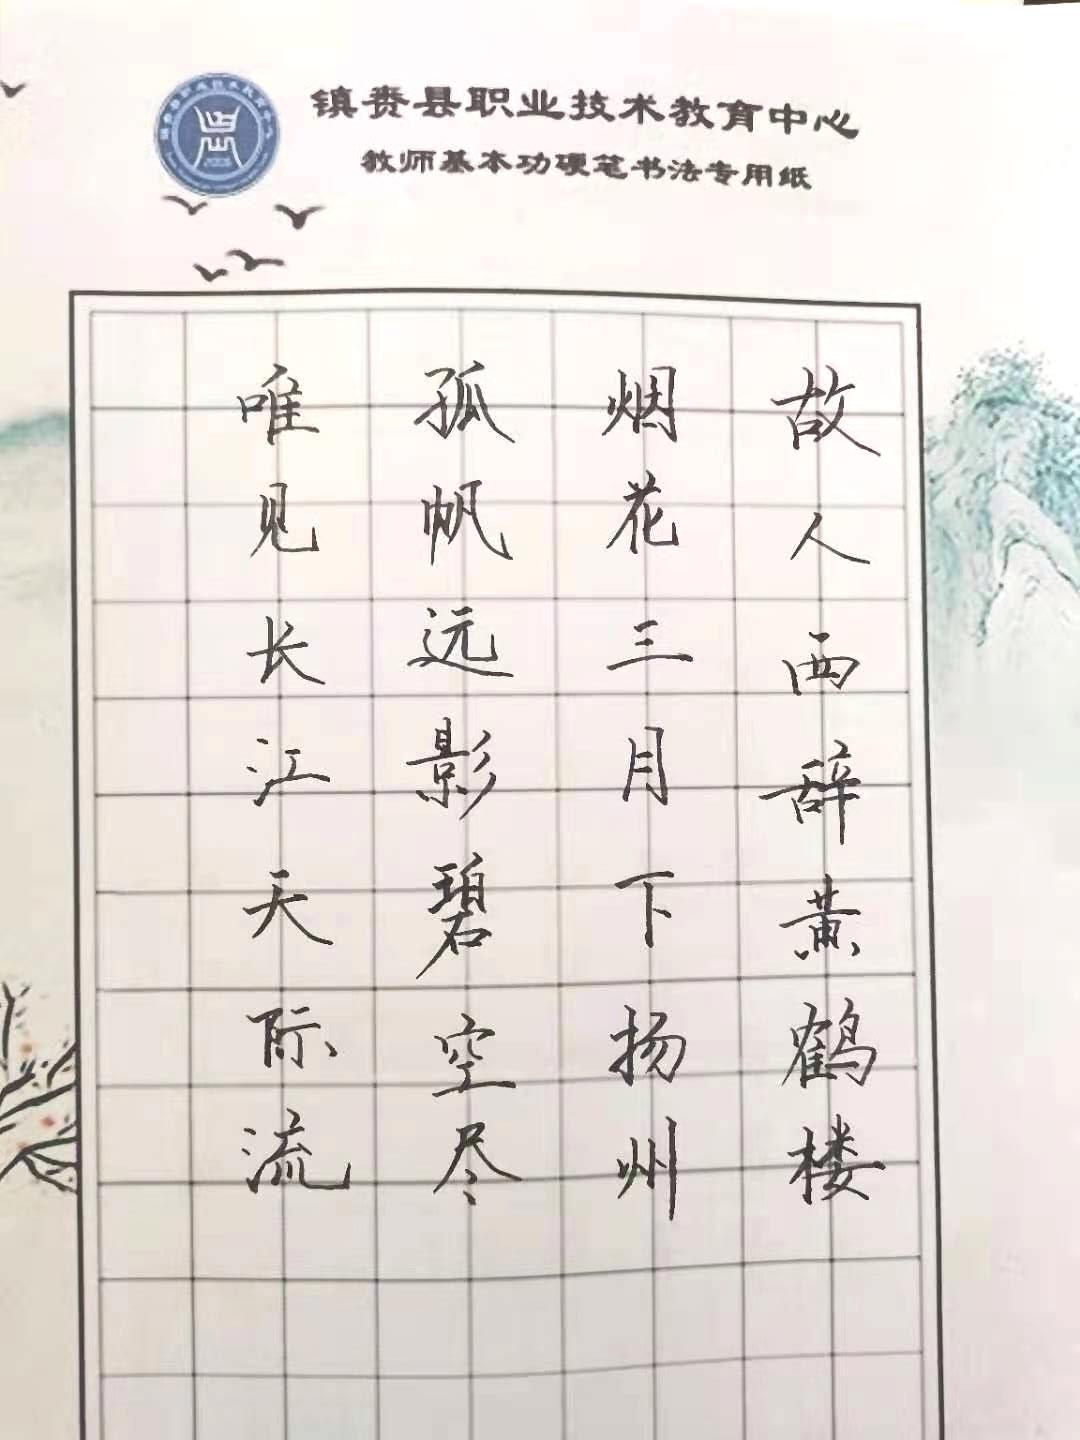 镇赉县职业技术教育中心
教师基本功硬笔书法专用纸
故人西辞黄鹤楼
烟花三月下扬州
孤帆远影碧空尽
唯见长江天际流